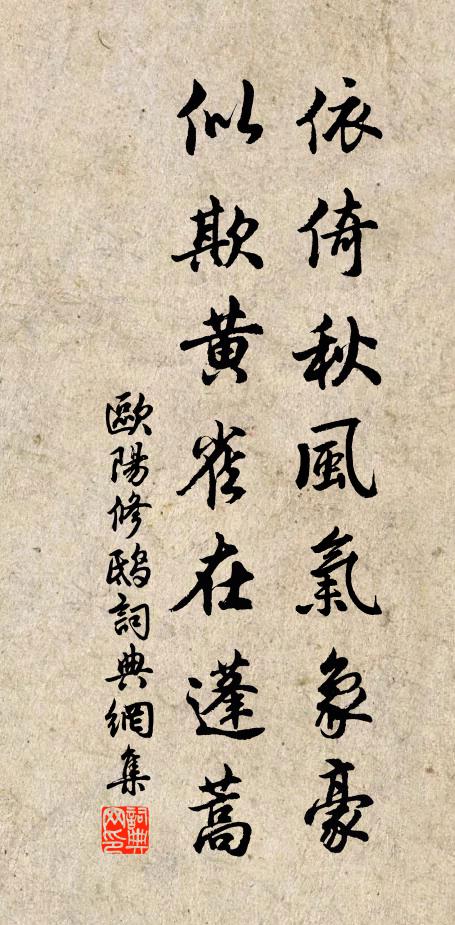 依倚秋風氣象豪
似欺黃雀在蓬蒿
歐陽修鴟詞典網集
詞典網印